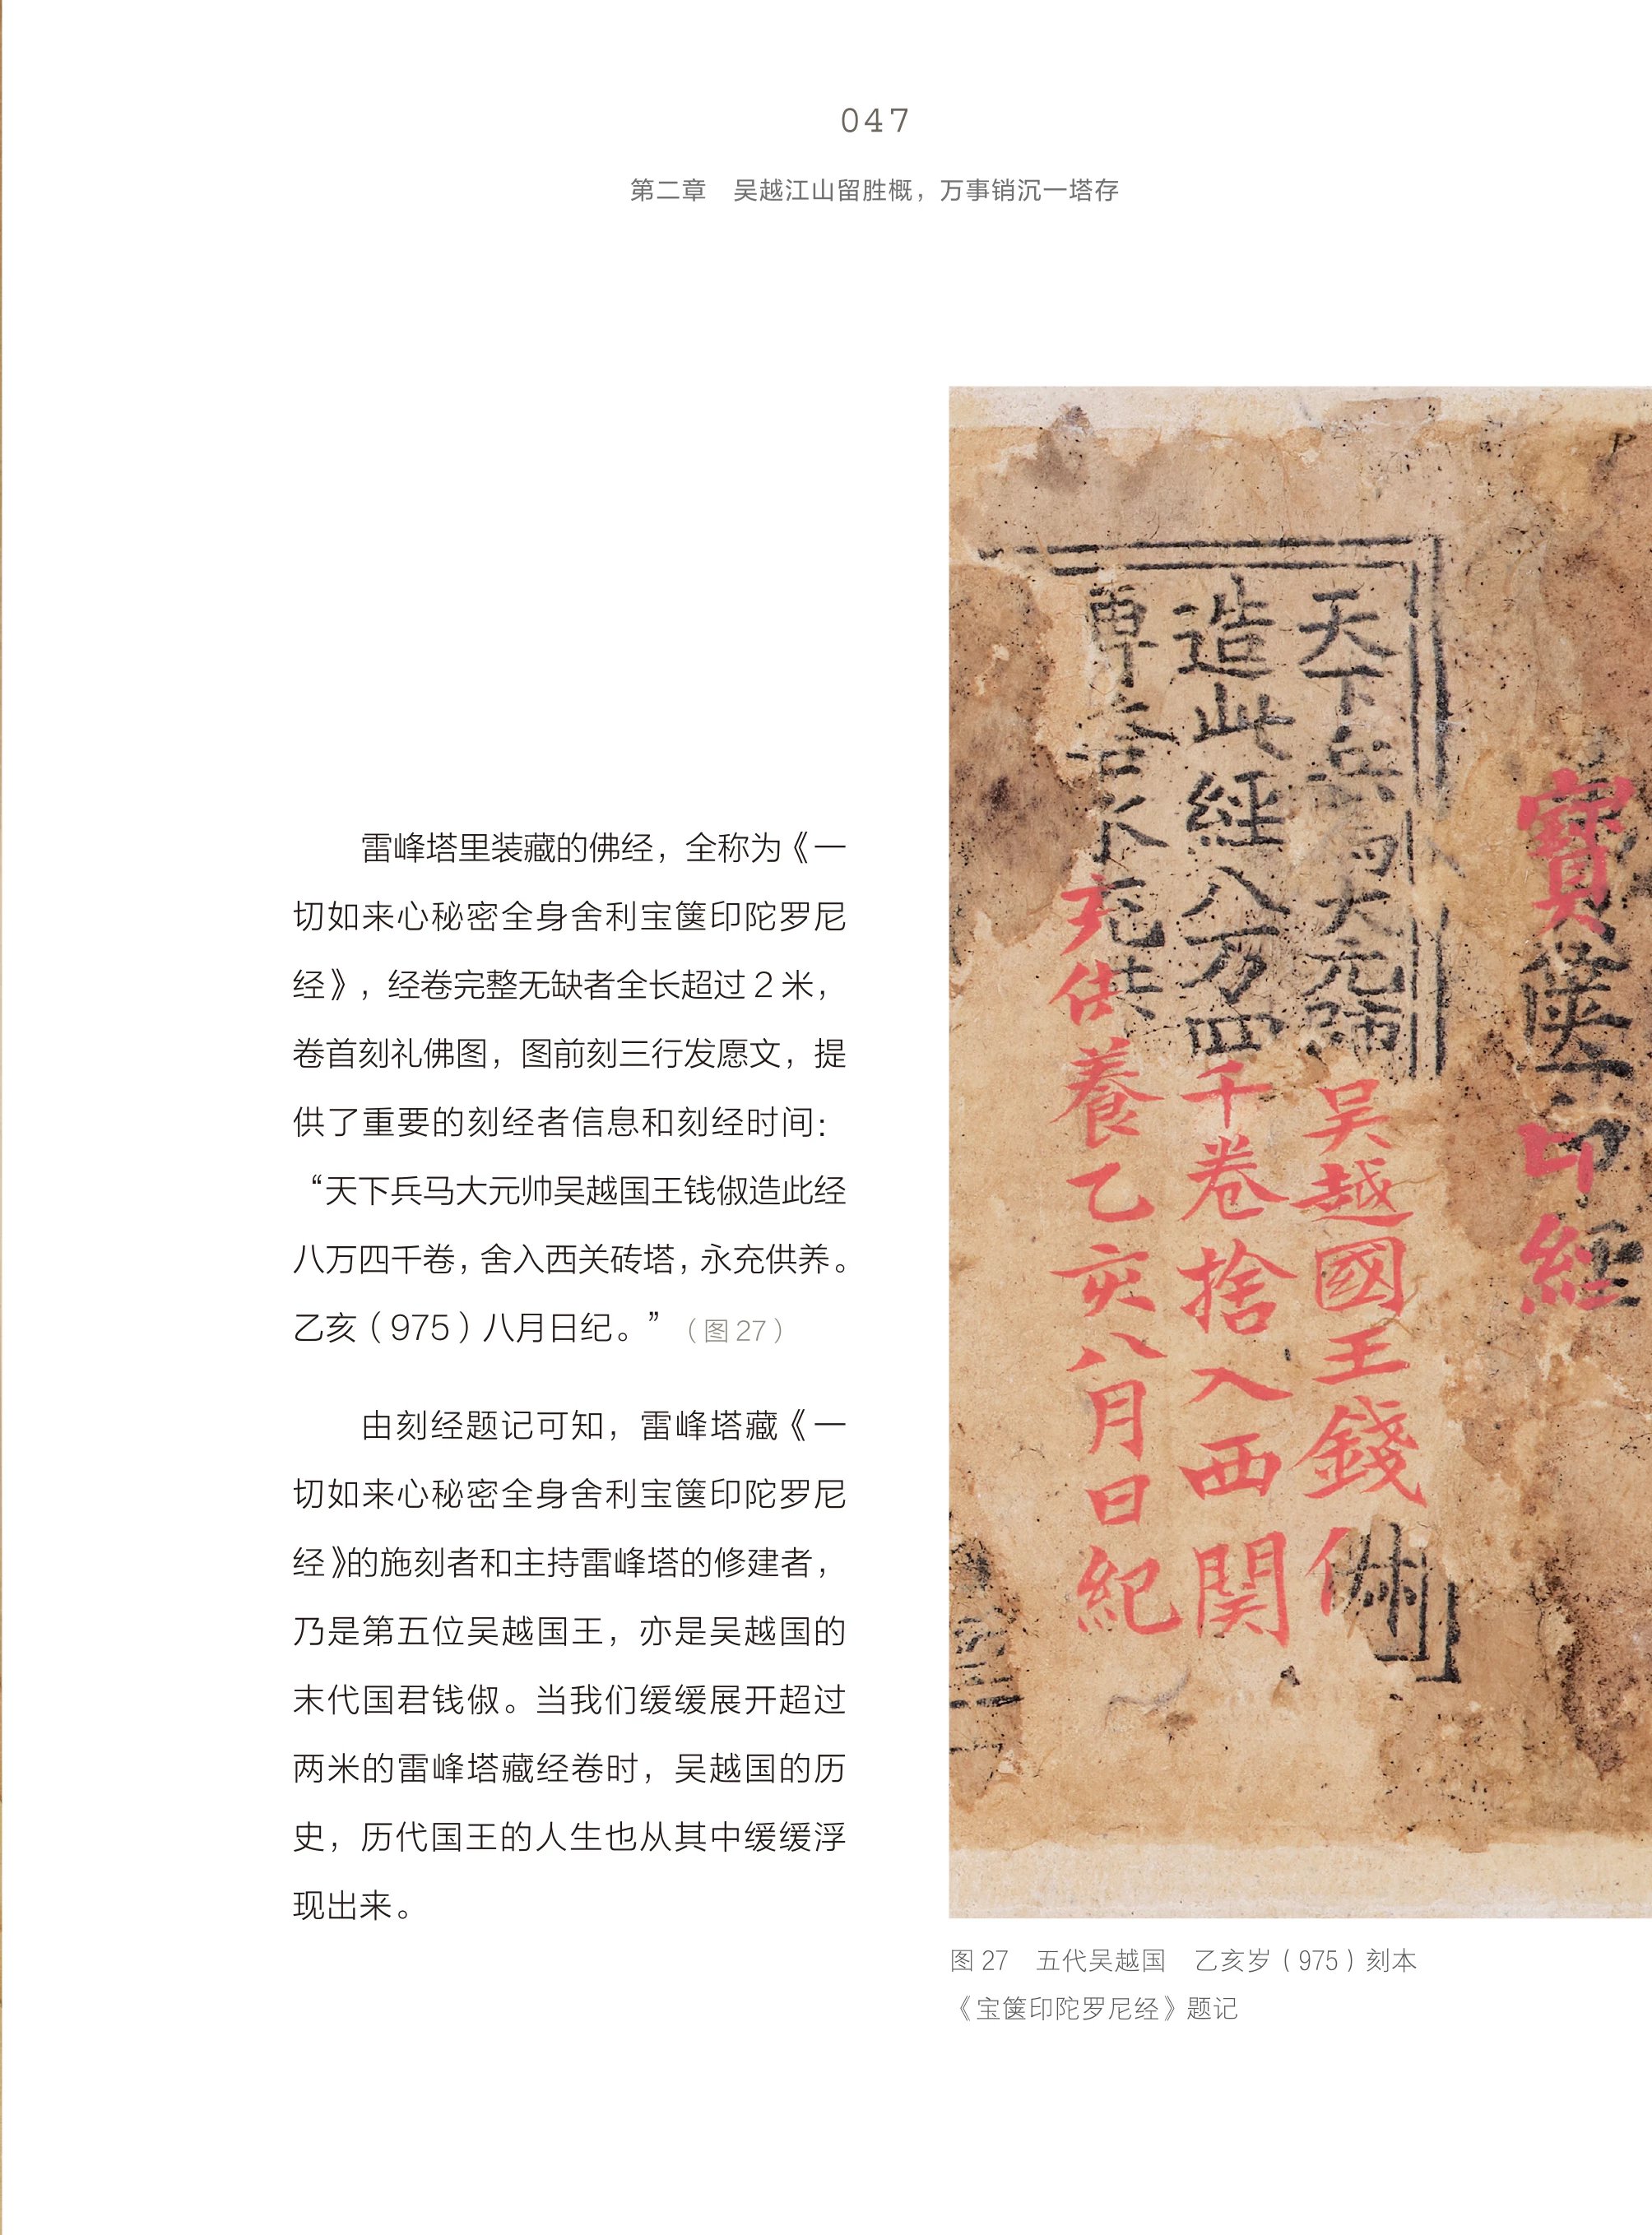 047
第二章 吴越江山留胜概，万事销沉一塔存
雷峰塔里装藏的佛经，全称为《一
切如来心秘密全身舍利宝箧印陀罗尼
经》，经卷完整无缺者全长超过 2 米，
卷首刻礼佛图，图前刻三行发愿文，提
供了重要的刻经者信息和刻经时间：
“天下兵马大元帅吴越国王钱俶造此经
八万四千卷，舍入西关砖塔，永充供养。
乙亥（975）八月日纪。”（图 27）
由刻经题记可知，雷峰塔藏《一
切如来心秘密全身舍利宝箧印陀罗尼
经》的施刻者和主持雷峰塔的修建者，
乃是第五位吴越国王，亦是吴越国的
末代国君钱俶。当我们缓缓展开超过
两米的雷峰塔藏经卷时，吴越国的历
史，历代国王的人生也从其中缓缓浮
现出来。
寶篋印經
天下兵馬大元帥吴越國王錢俶
造此經八万四千卷捨入西関
永充供養乙亥八月日紀
图 27 五代吴越国 乙亥岁（975）刻本
《宝箧印陀罗尼经》题记